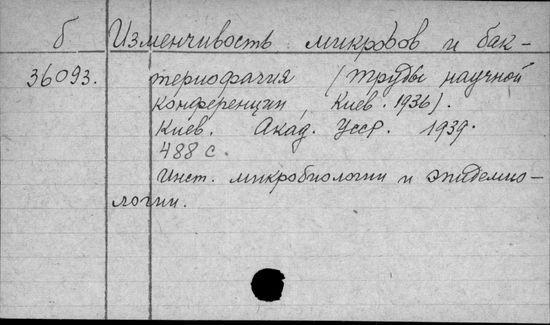 б Изменчивость микробов и бак-
36093. териофагия (Труды научной
конференции, Киев. 1936).
Киев. Акад. УССР. 1939.
488 с.
Инст. микробиологии и эпидемио-
логии.